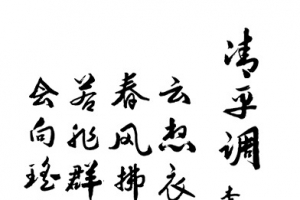 清平调
李
云想衣
春风拂
若非群
会向瑶